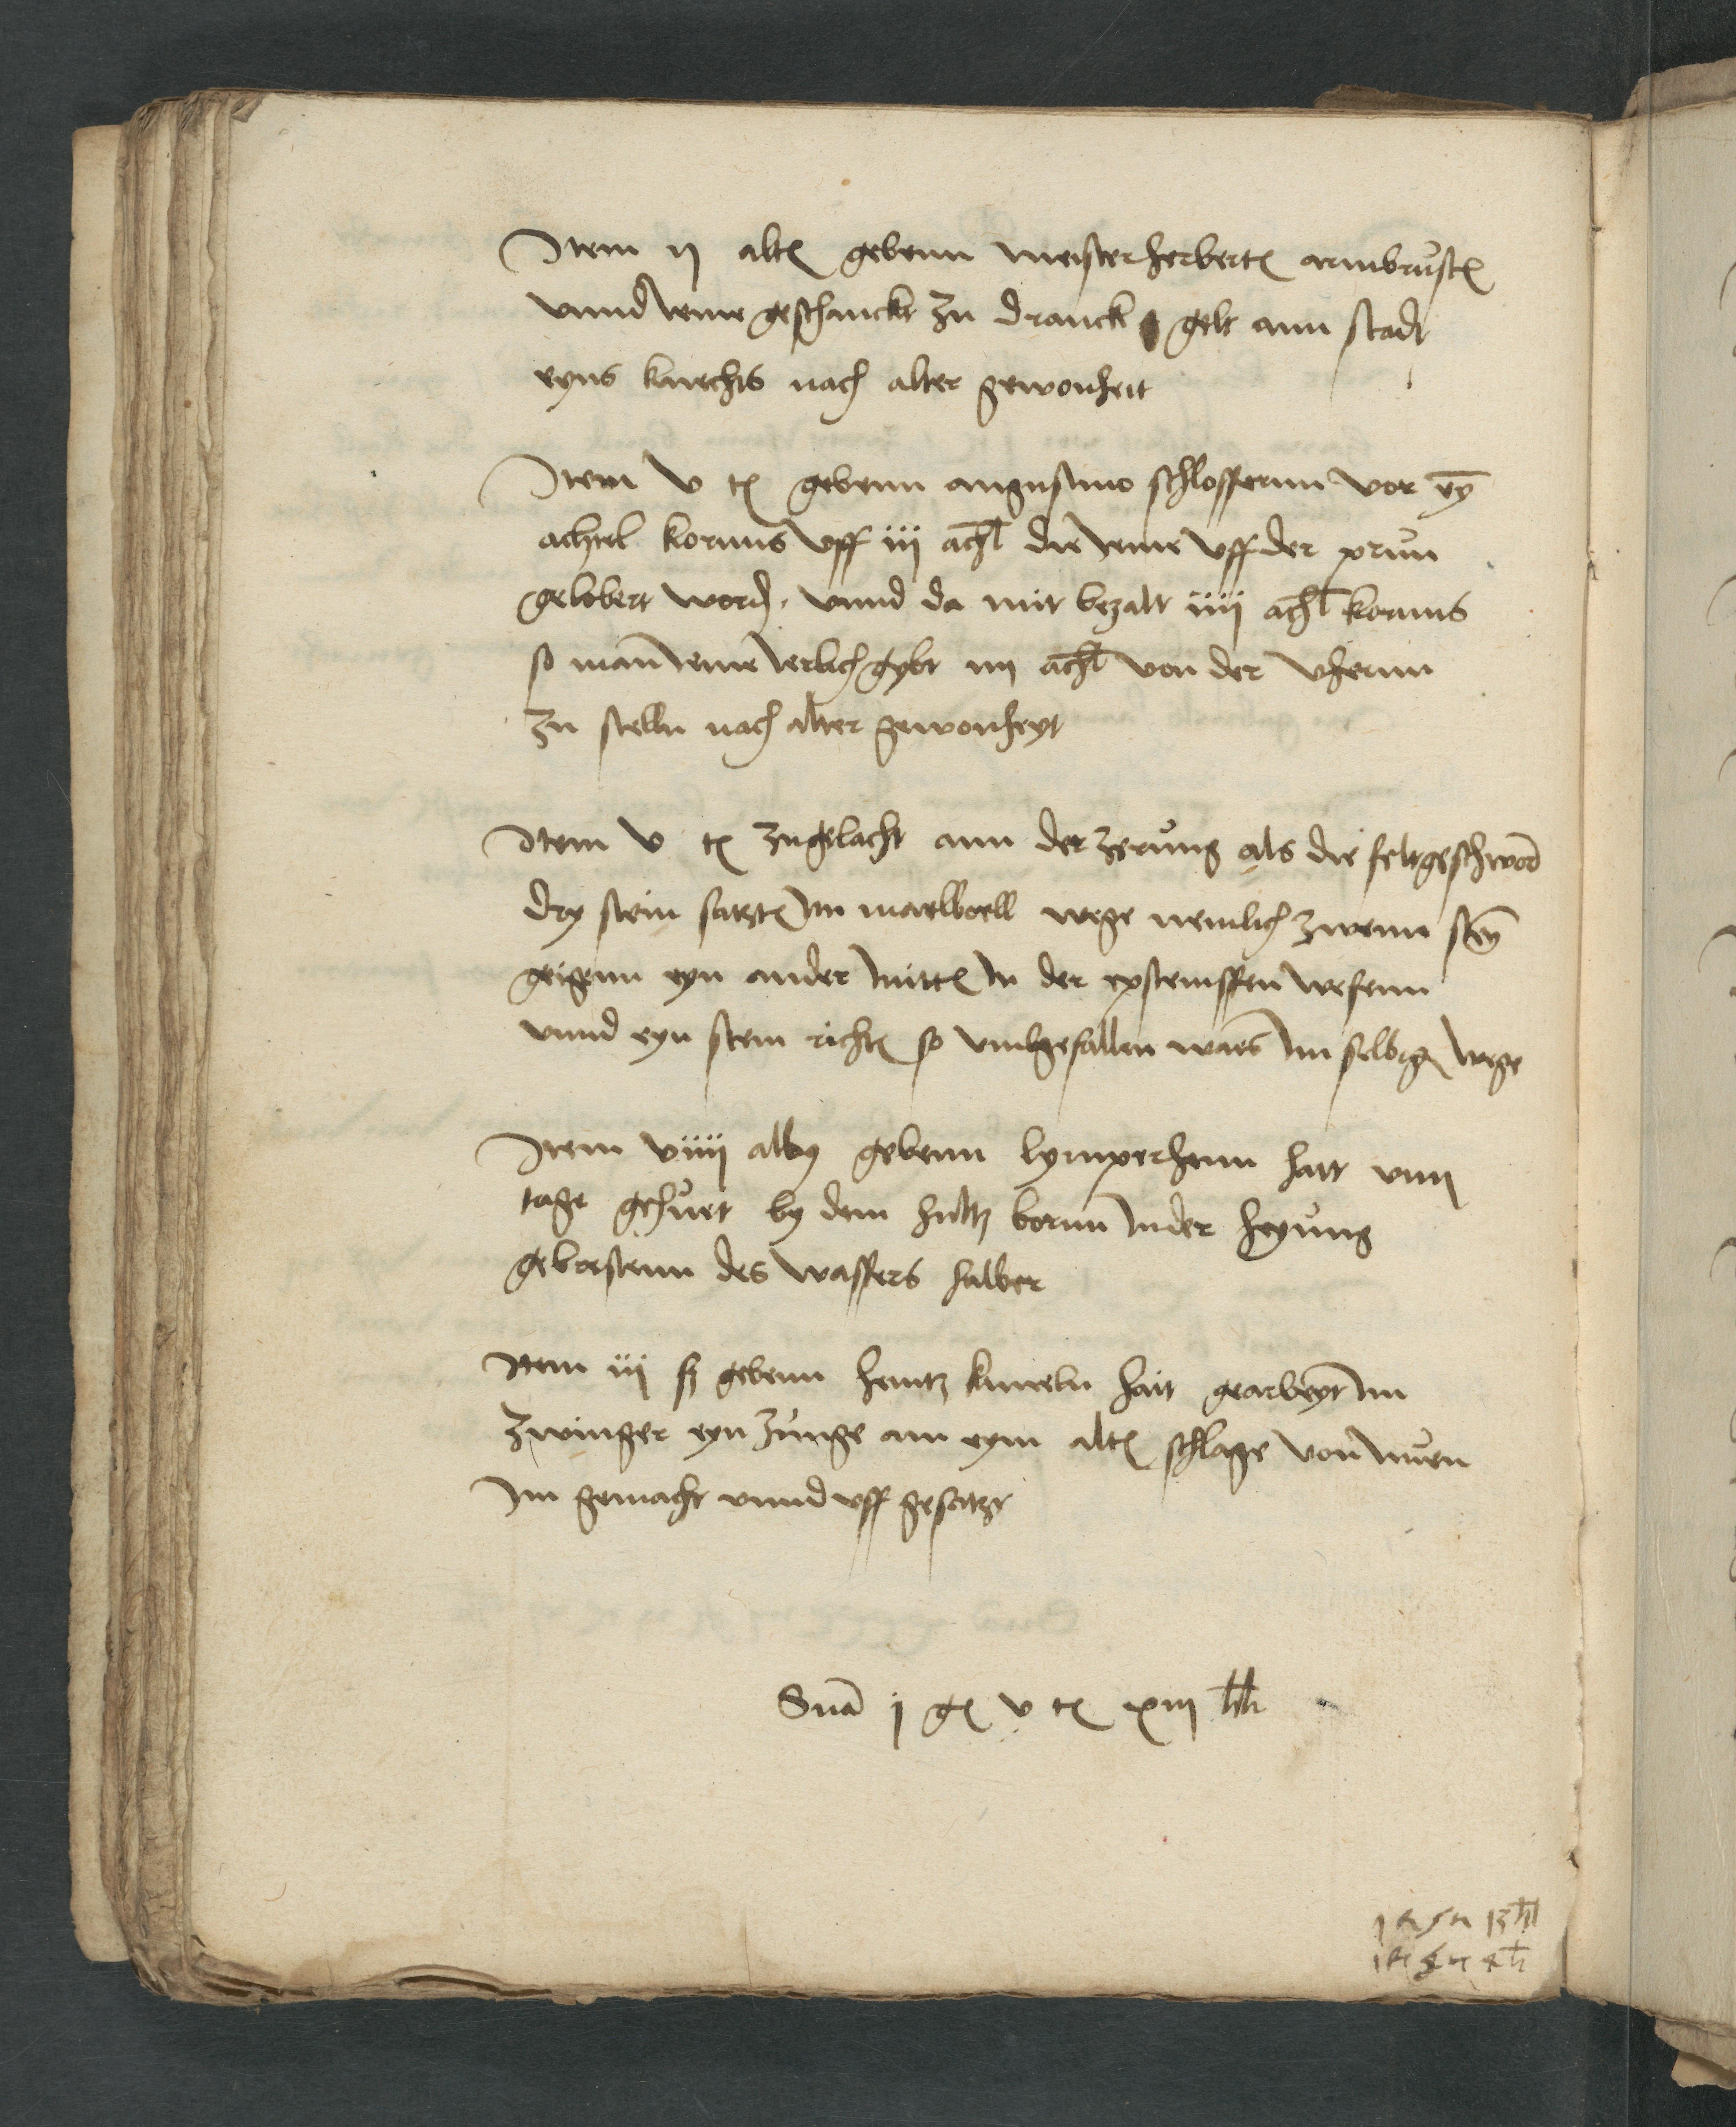 Item ij alt gebenn meister herbert armbrust
vnnd eme geschanckt zu dranck gelt ann stadt
eyns knechts nach alter gewonheit
Item v t gebenn augustino schlossernn vor ey
achtel kornns vff iij achl die eme vff der
gelobert word. vnnd da mit bezalt iiij achl kornns
so man eme Jerlich gybt iiij achl von der vhernn
zu stelln nach alter gewonheyt
Item v t zugelacht ann der zerung als die feltgeschword
dry stein satzt Im wege nemlich zwenn stey
geigenn eyn ander mitt In der wesenn
vnnd eyn stein richt so vmbgefallen waes Im selbig wege
Item viiij albus gebenn lymperhenn hatt viiij
tage gehuet by dem hultz bornn Inder heyung
geborstenn des wassers halber
Item iij ß gebenn hentz hait gearbeyt Im
zwinger eyn zunge ann eym alt schlage von nuen
Inn gemacht vnnd vff gesatzt
Sua j g v t xiij hl